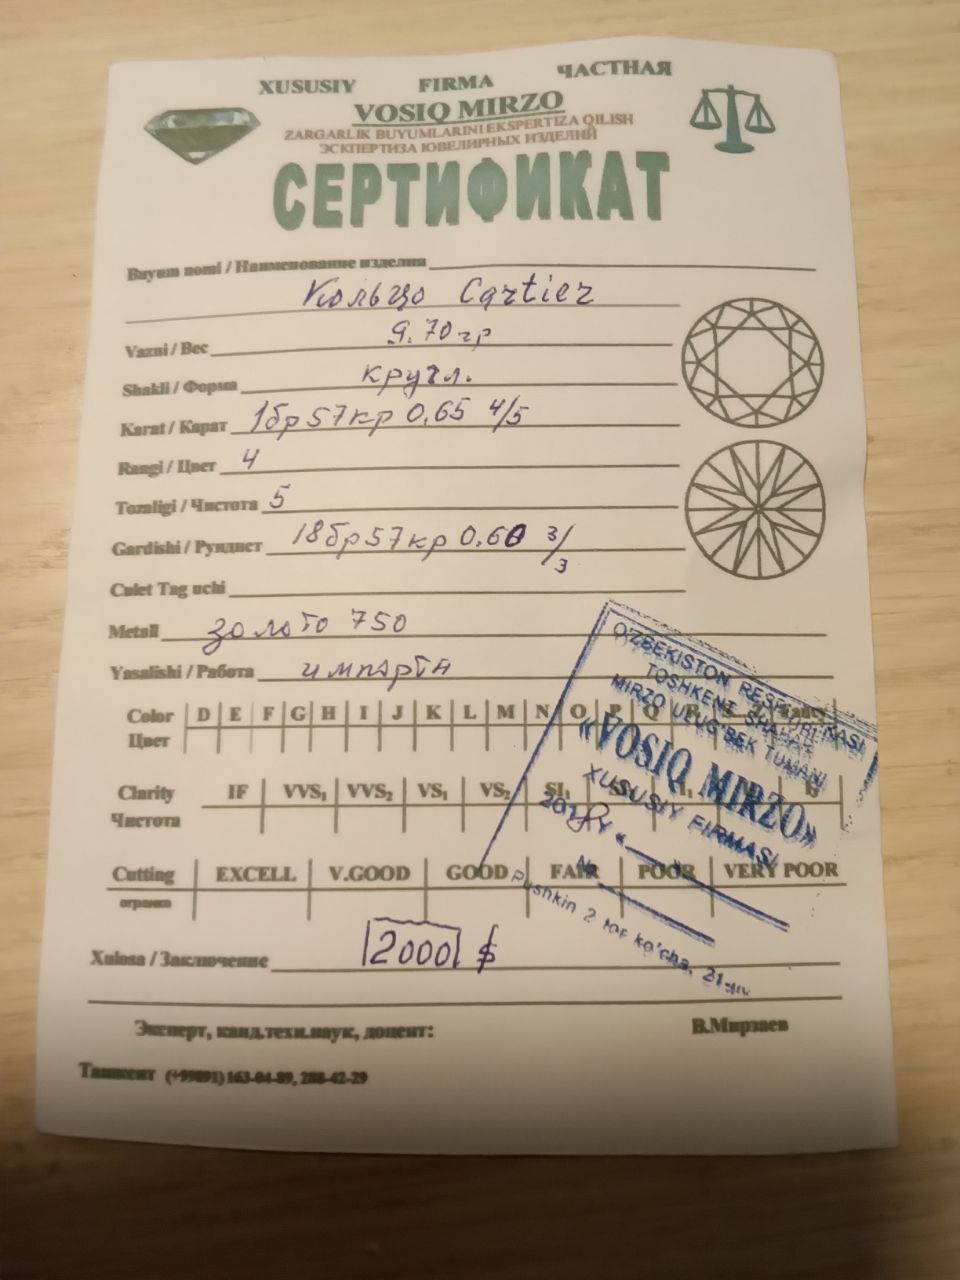 XUSUSIY FIRMA ЧАСТНАЯ
VOSIQ MIRZO
ZARGARLIK BUYUMLARINI EKSPERTIZA QILISH
ЭСКПЕРТИЗА ЮВЕЛИРНЫХ ИЗДЕЛИЙ
СЕРТИФИКАТ
Buyum nomi / Наименование изделия
Кольцо Cartier
Vazni / Вес 9.70 гр
Shakli / Форма кругл.
Karat / Карат 1бр57кр 0,65 4/5
Rangi / Цвет 4
Tozaligi / Чистота 5
Gardishi / Рундист 18бр57кр 0.60 3/3
Culet Tag uchi
Metall золото 750
Yasalishi / Работа импорта
Color D E F G H I J K L M N O P Q
Цвет
Clarity IF VVS₁ VVS₂ VS₁ VS₂ SI₁
Чистота
Cutting EXCELL V.GOOD GOOD FAIR POOR VERY POOR
огранка
Xulosa / Заключение 2000 $
Эксперт, канд.техн.наук, доцент: В.Мирзаев
Ташкент (+99891) 163-04-89, 288-42-29
O'ZBEKISTON RESPUBLIKASI
TOSHKENT SHAHAR
MIRZO ULUG'BEK TUMANI
«VOSIQ MIRZO»
XUSUSIY FIRMASI
№
Pushkin 2 tor ko'cha, 21-uy